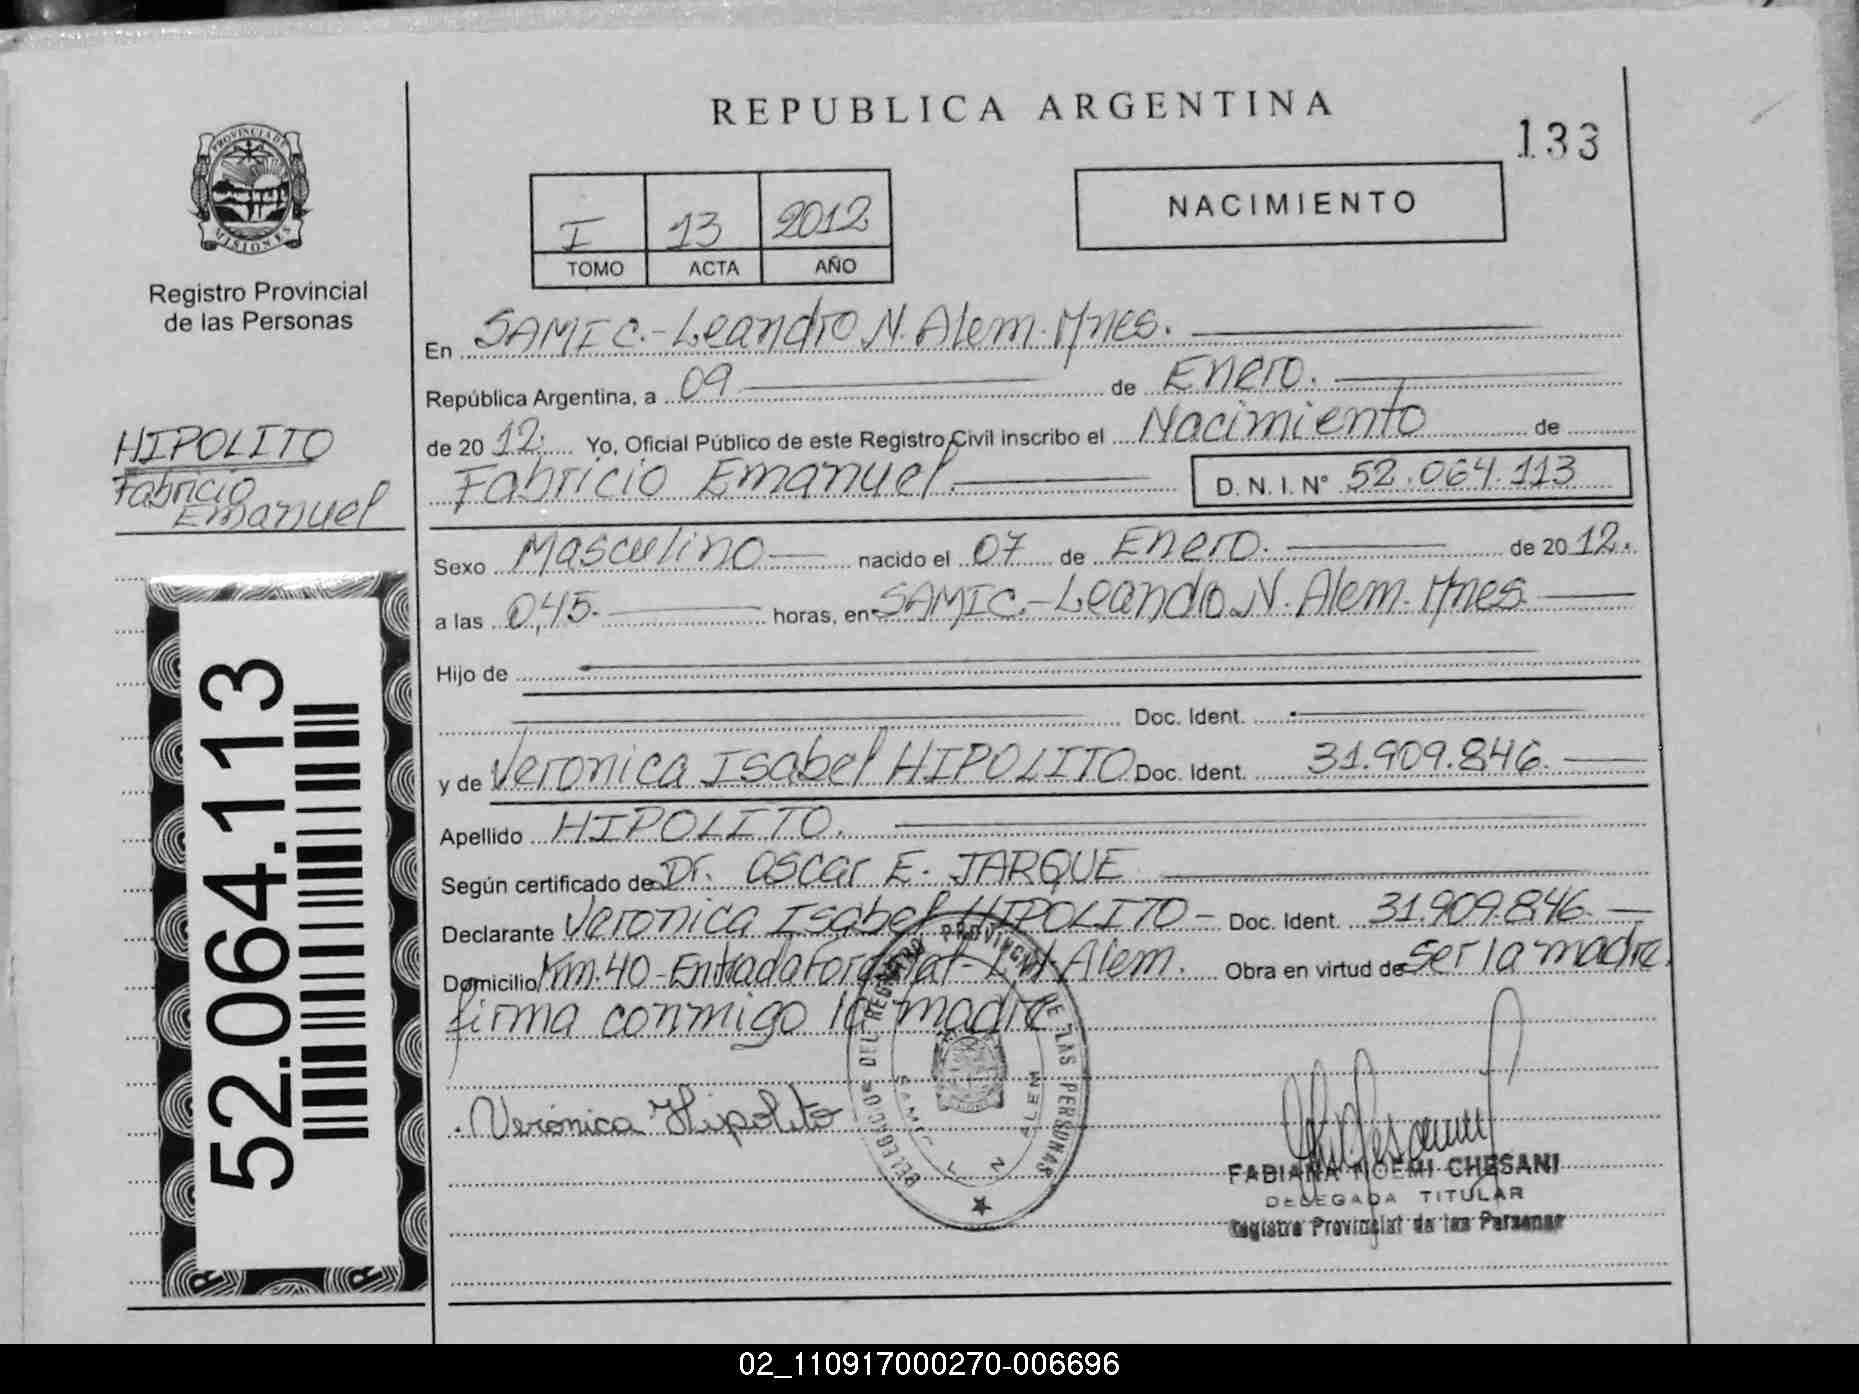 REPUBLICA ARGENTINA
133
PROVINCIA DE MISIONES
Registro Provincial
de las Personas
I 13 2012
TOMO ACTA AÑO
NACIMIENTO
En SAMIC.-Leandro N. Alem. Mnes.
República Argentina, a 09 de Enero.
de 2012. Yo, Oficial Público de este Registro Civil inscribo el Nacimiento de
Fabricio Emanuel. D. N. I. N° 52.064.113
HIPOLITO
Fabricio
Emanuel
Sexo Masculino nacido el 07 de Enero. de 2012.
a las 0,45. horas, en SAMIC.-Leandro N. Alem. Mnes
Hijo de
Doc. Ident.
y de Veronica Isabel HIPOLITO Doc. Ident. 31.909.846.
Apellido HIPOLITO.
Según certificado de Dr. Oscar E. JARQUE
Declarante Veronica Isabel HIPOLITO - Doc. Ident. 31.909.846.
Domicilio Km. 40 - Entrada L.N. Alem. Obra en virtud de Ser la madre.
firma conmigo la madre
Verónica Hipolito
DEL REGISTRO PROVINCIAL DE LAS PERSONAS
SAMIC L N ALEM
FABIANA NOEMI CHESANI
DELEGADA TITULAR
Registro Provincial de las Personas
52.064.113
02_110917000270-006696